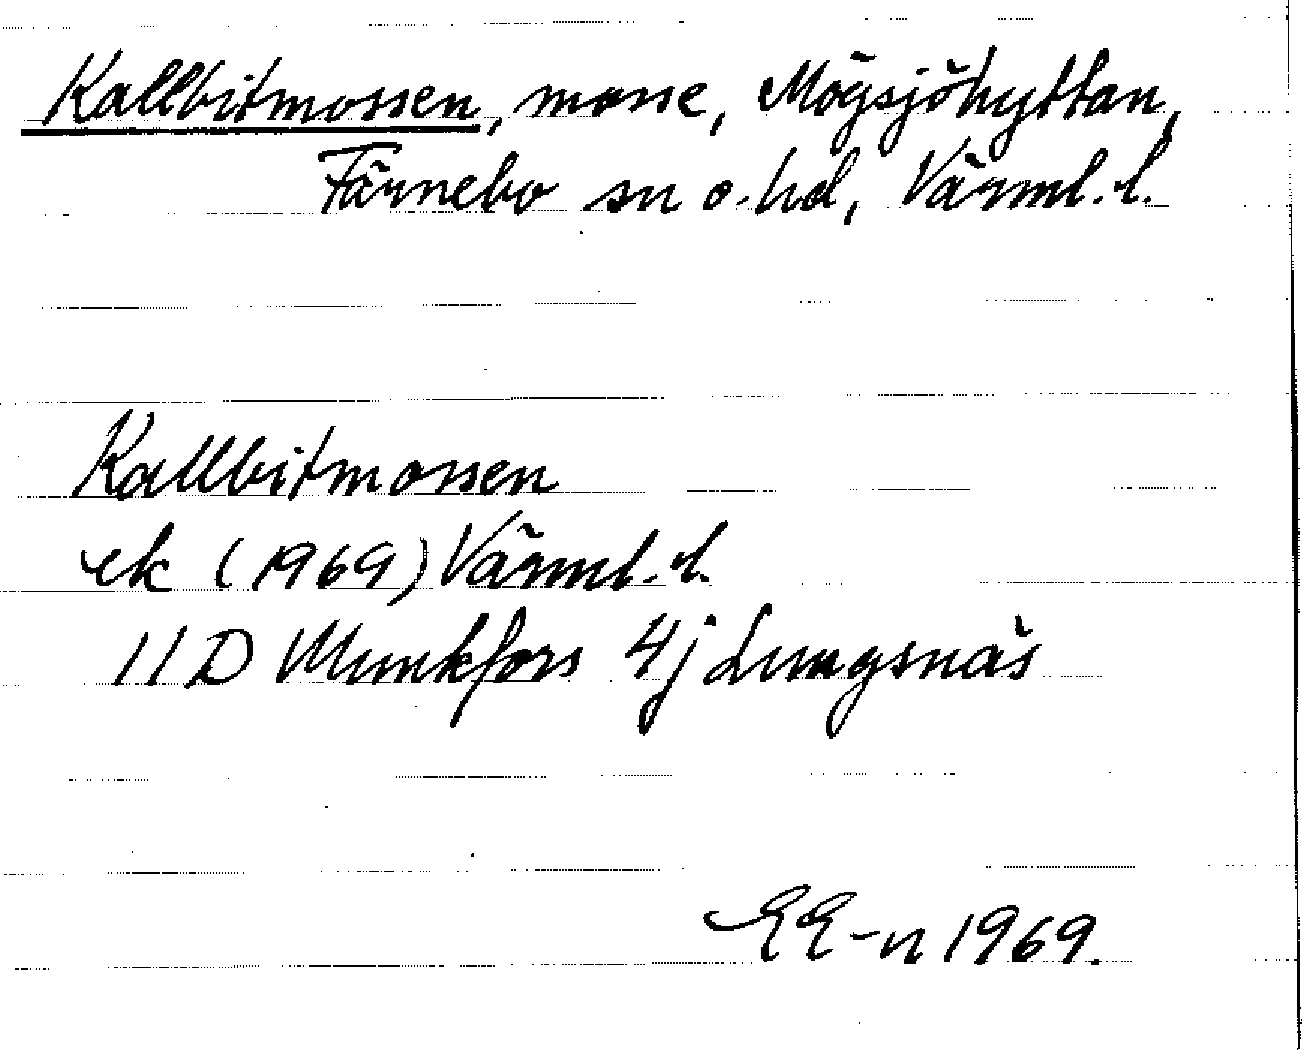 Kallbitmossen, mosse, Mögsjöhyttan,
Färnebo sn o. hd, Värml. l.
Kallbitmossen
ek (1969) Värml. l.
11 D Munkfors 4j Lungsnäs
EE-n 1969.